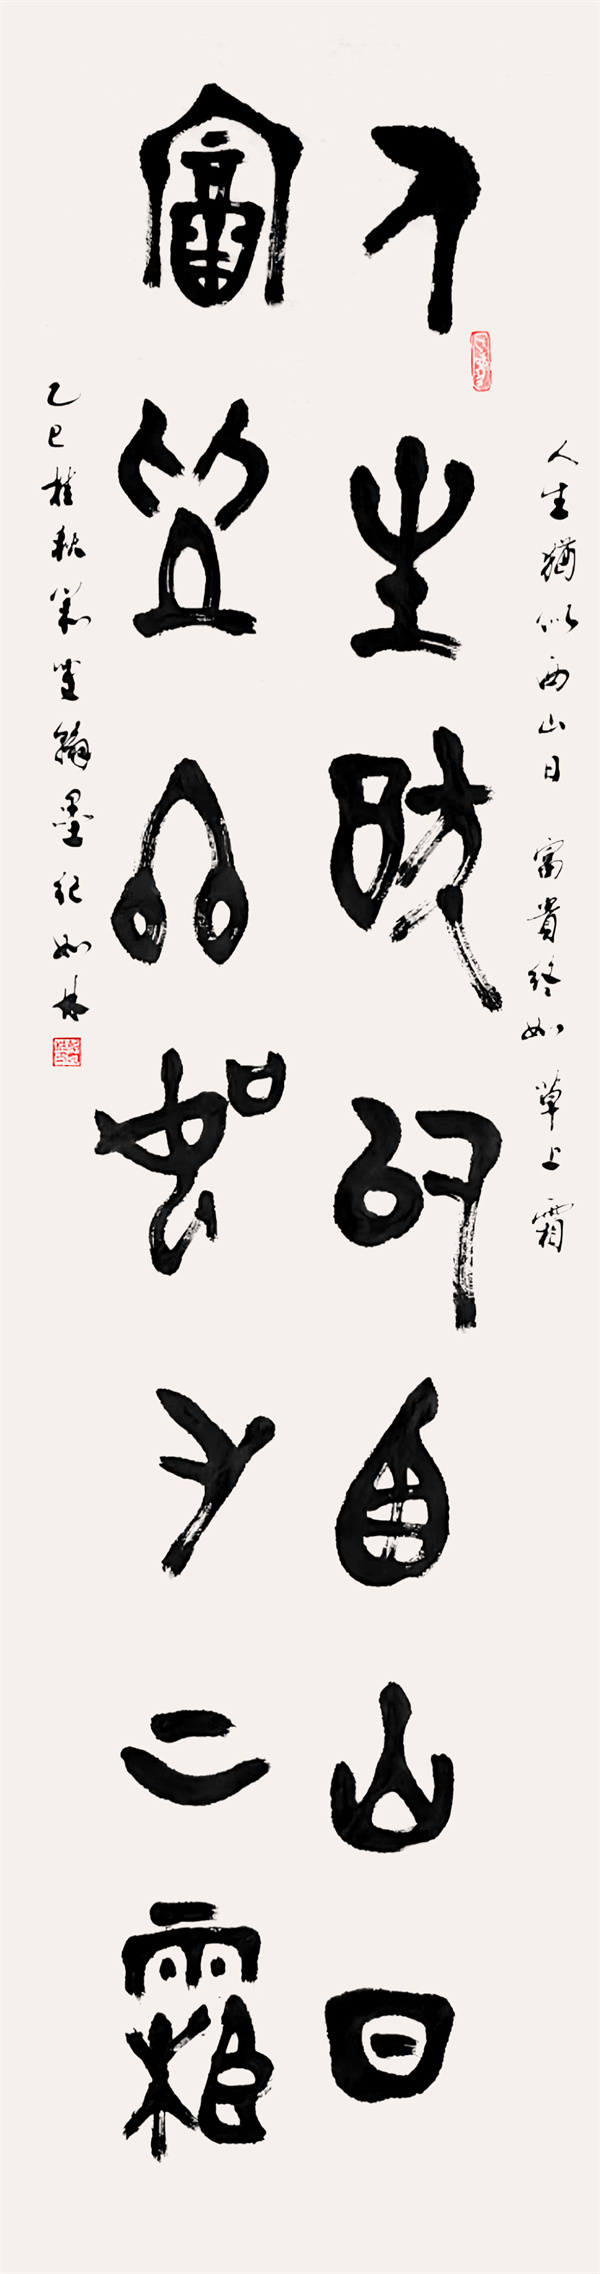 人生猶似西山日 富貴終如草上霜
人生猶似西山日
富貴終如草上霜
乙巳桂秋 翰墨 紀如林